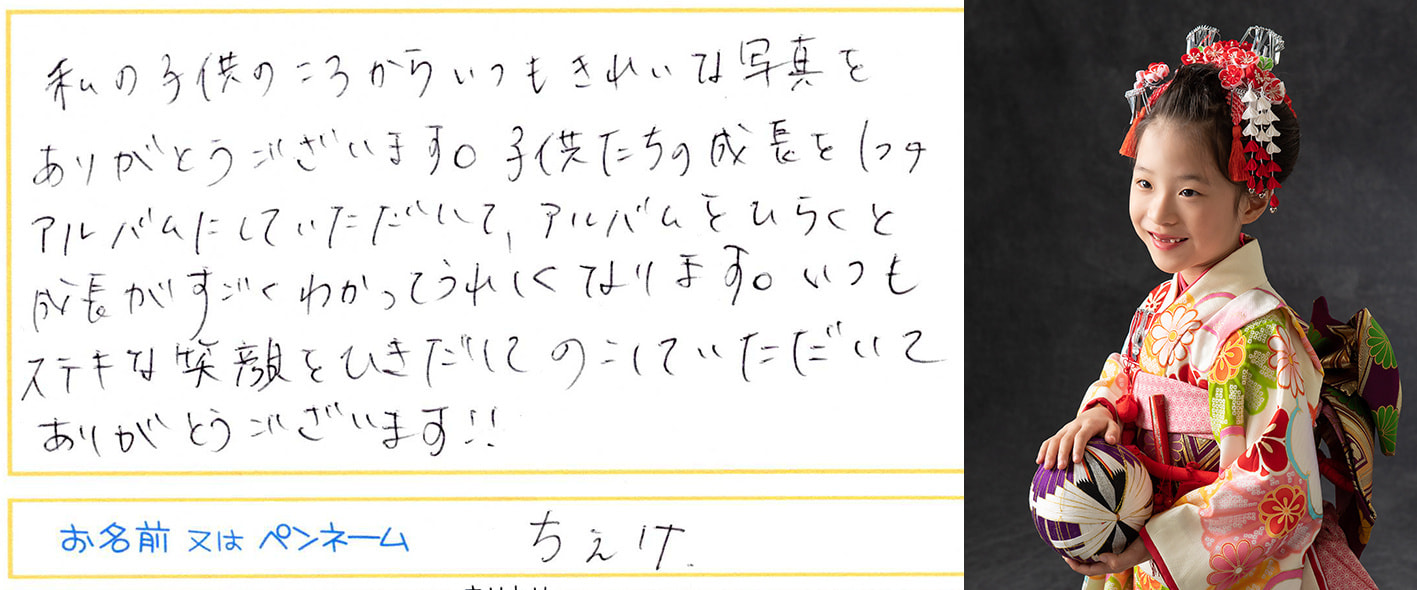 私の子供のころからいつもきれいな写真を
ありがとうございます。子供たちの成長を1つの
アルバムにしていただいて、アルバムをひらくと
成長がすごくわかってうれしくなります。いつも
ステキな笑顔をひきだしてのこしていただいて
ありがとうございます!!
お名前 又は ペンネーム ちぇけ